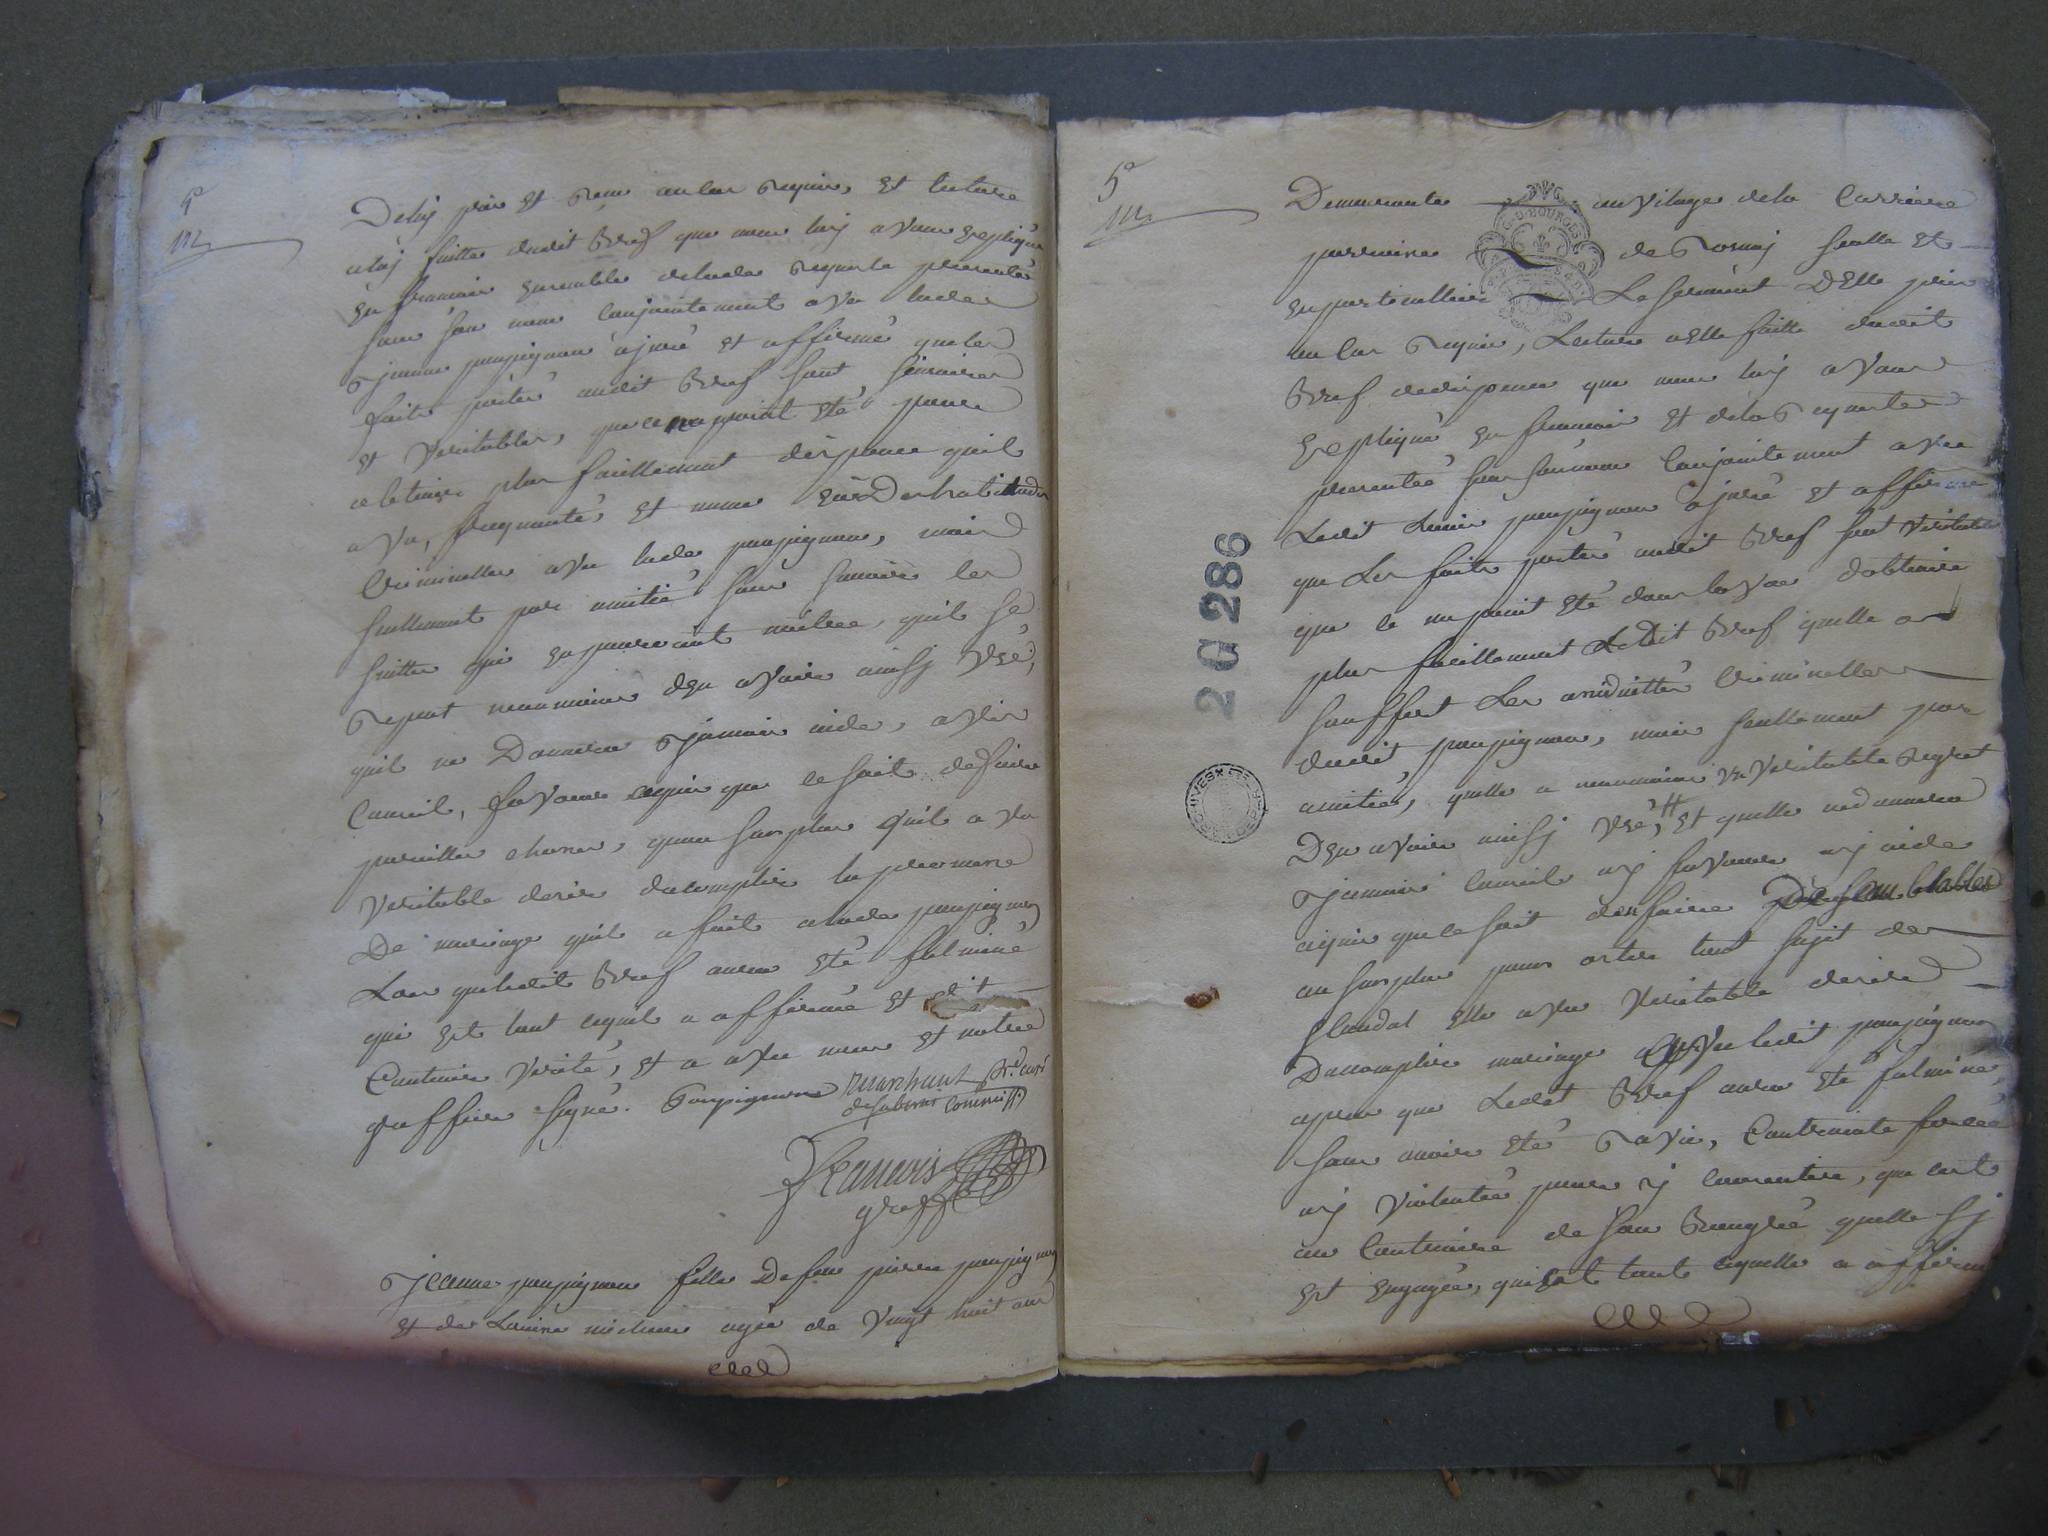 5e
112
De luy pris et Reçu au cas Requis, et lecture
a luy faitte dudit Bref que nous luy avons Expliqué
En francois Ensemble de lade Requete presentée
sous son nom Conjointement avec lade
Jeanne poupignon a juré et affirmé que les
faits portés audit Bref sont sinceres
et Veritables, que ce na point été pour
obtenir plus facillement dispence quil
a vu, frequenté, et meme eü Des habitudes
Criminelles avec lade poupignon, mais
seullement par amitié sans sauoir les
suittes qui en pouroient naitre, quil se
Repent neanmoins d'En avoir ainsy Vsé,
quil ne Donnera Jamais aide, avis
Conseil, faveur aqui que ce soit de faire
pareilles choses, quau surplus quil a vn
Veritable desir dacomplir la promesse
De mariage quil a fait a lade poupignon
Lors que ledit Bref aura été fulminé
qui est tout cequil a affirmé et dit
Contenir verité, et a avec nous et notre
greffier signé. Poupignon Marchant pr. curé
commiss.
Jeanne poupignon fille De feu pierre poupignon
et de Louise michau agée de Vingt huit ans
5e
112
G. D BOURGES
Demeurante au Vilage de la Carriere
parroisse de Rosnay seulle et
En particullier Le serment D'Elle pris
au cas Requis, Lecture a Elle faitte dudit
Bref de dispence que nous luy avons
Expliqué En francois et de la Requete
presentée sous son nom Conjointement avec
Ledit Louis poupignon a juré et affirmé
que Les faits portés audit Bref sont Veritables
que ce na point été dans la vue d'obtenir
plus facillement Ledit Bref quelle a
souffert Les assiduittés Criminelles
dudit poupignon, mais seullement par
amitiés, quelle a neanmoins un Veritable Regret
D'En avoir ainsy Vsé, # et quelle ne donnera
Jamais Conseil ny faveur ny aide
aqui que ce soit d'en faire De semblables
au surplus pour oster tout sujet de
scandal Elle a vn Veritable desir
Dacomplir mariage avec ledit poupignon
apres que Ledit Bref aura été fulminé,
sans avoir été Ravie, Contrainte forcée
ny Violentée pour y Consentir, que cest
au Contraire de son Bongré quelle sy
est Engagée, qui est tout cequelle a affirmé
2 G 286